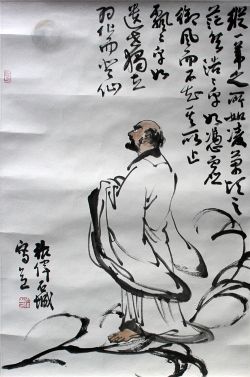 縱一葦之所如凌萬頃之
茫然浩々乎如憑虛
御風而不知其所止
飄々乎如
遺世獨立
羽化而登仙